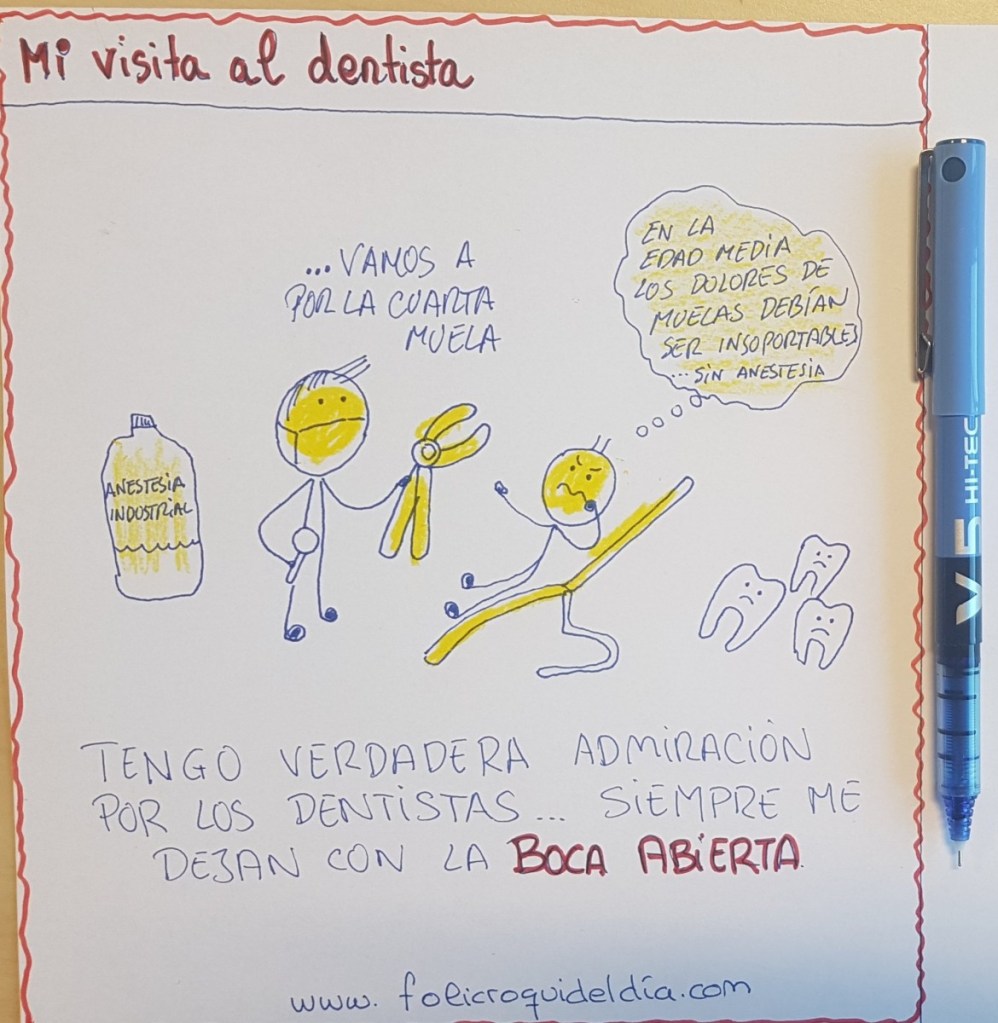 Mi visita al dentista
...VAMOS A
POR LA CUARTA
MUELA
EN LA
EDAD MEDIA
LOS DOLORES DE
MUELAS DEBÍAN
SER INSOPORTABLES
...SIN ANESTESIA
ANESTESIA
INDUSTRIAL
TENGO VERDADERA ADMIRACIÓN
POR LOS DENTISTAS... SIEMPRE ME
DEJAN CON LA BOCA ABIERTA.
www.folicroquideldía.com
V5 HI-TEC